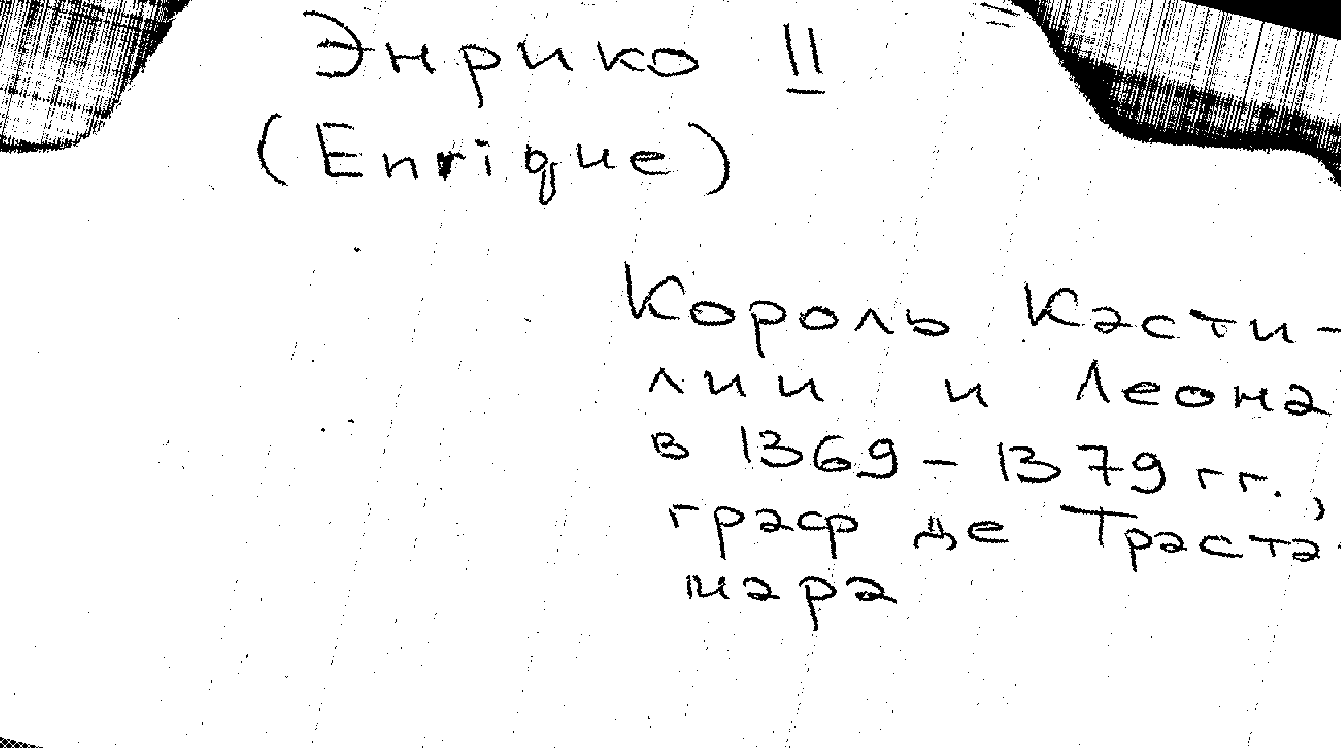 Энрико II
(Enrique)
Король Касти-
лии и Леона
в 1369-1379 гг.,
граф де Траста-
мара